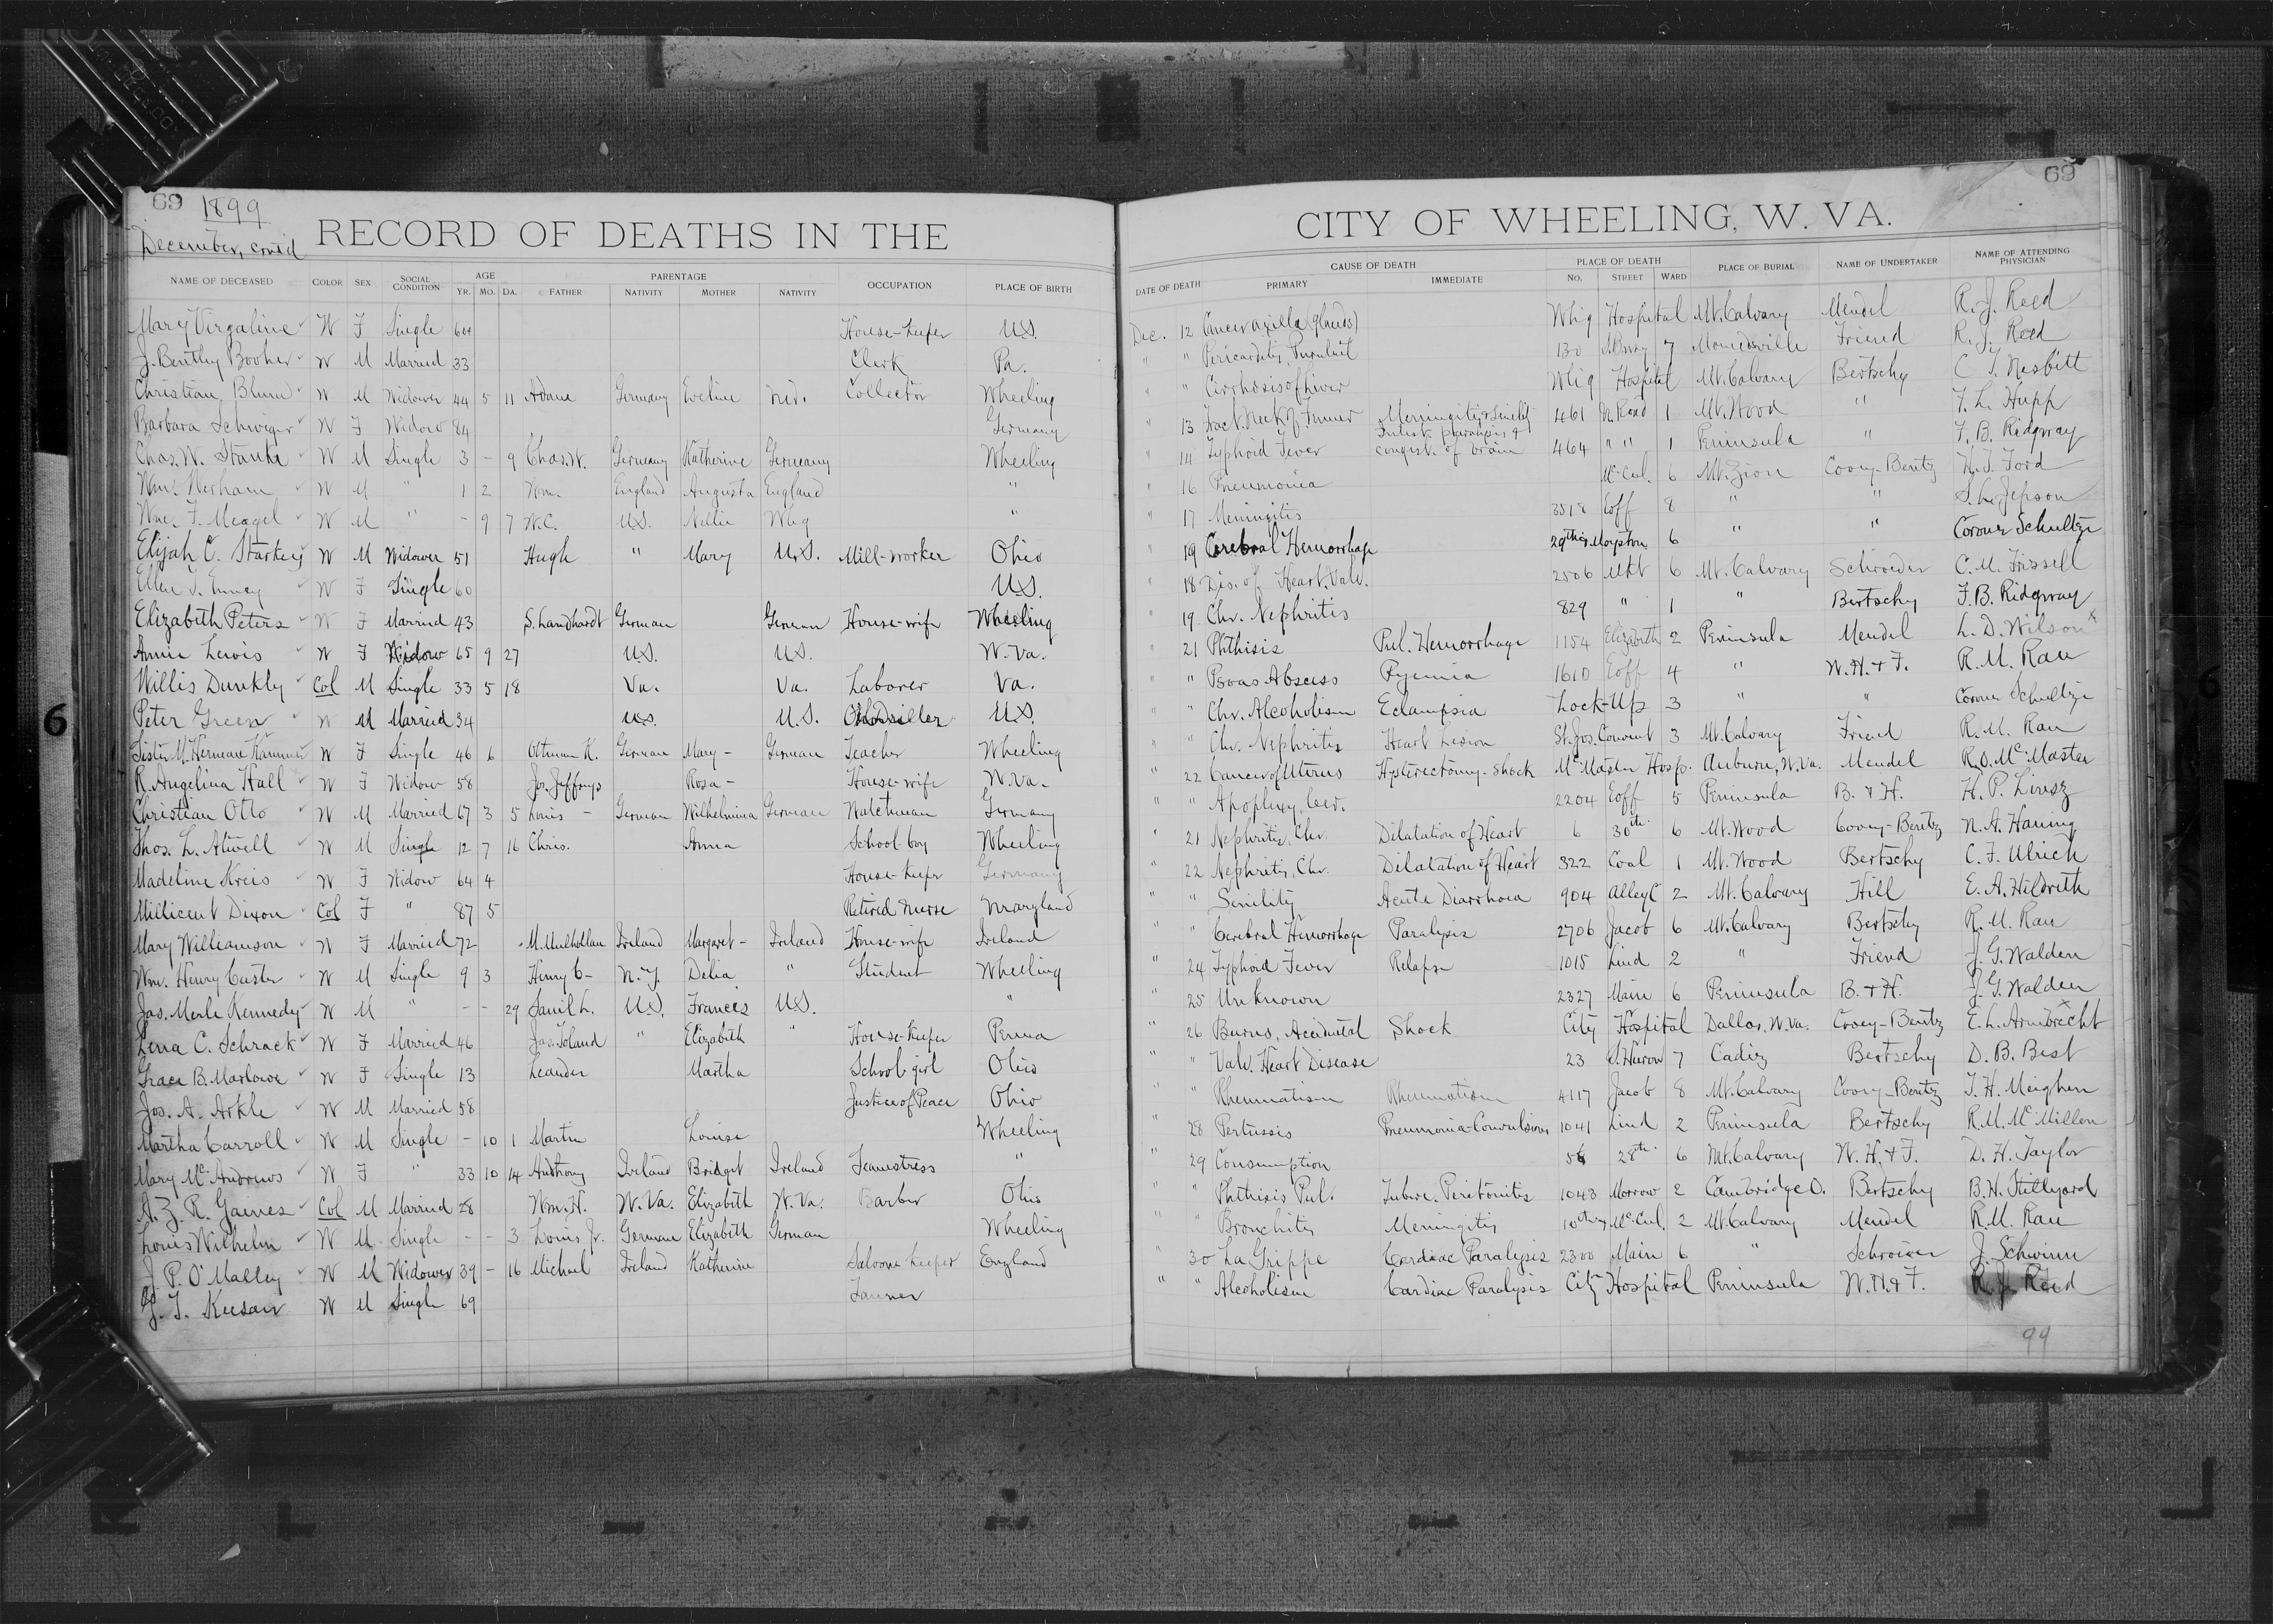 69 1899
69
December, cont'd
RECORD OF DEATHS IN THE CITY OF WHEELING, W. VA.
NAME OF DECEASED COLOR SEX SOCIAL CONDITION AGE YR. MO. DA. PARENTAGE FATHER NATIVITY MOTHER NATIVITY OCCUPATION PLACE OF BIRTH DATE OF DEATH CAUSE OF DEATH PRIMARY IMMEDIATE PLACE OF DEATH NO. STREET WARD PLACE OF BURIAL NAME OF UNDERTAKER NAME OF ATTENDING PHYSICIAN
Mary Virgaline W F Single 64 House-keeper U.S. Dec. 12 Cancer axilla (glands) Whg Hospital Mt. Calvary Mendel R. J. Reed
J. Bentley Booher W M Married 33 Clerk Pa. " " Pericarditis, Purulent 130 7 Moundsville Friend R. J. Reed
Christian Blum W M Widower 44 5 11 Adam Germany Eveline Md. Collector Wheeling " " Cirrhosis of Liver Whg Hospital Mt. Calvary Bertschy C. T. Nesbitt
Barbara Schwiger W F Widow 84 Germany " 13 Fract. Neck of Femur 461 N. Road 1 Mt. Wood " F. L. Hupp
Chas. W. Stanka W M Single 3 - 9 Chas. W. Germany Katherine Germany Wheeling " 14 Typhoid Fever congest. of brain 464 " " 1 Peninsula " F. B. Ridgway
Wm. Werham W M " 1 2 Wm. England Augusta England " " 16 Pneumonia McCul. 6 Mt. Zion Cooey-Bentz W. J. Ford
Wm. F. Meagel W M " - 9 7 W. C. U.S. Nellie Whg " " 17 Meningitis 3518 Eoff 8 " " S. L. Jepson
Elijah C. Starkey W M Widower 51 Hugh " Mary U.S. Mill-worker Ohio " 19 Cerebral Hemorrhage 29th 6 Coroner Schultze
Ellen W F Single 60 U.S. " 18 Dis. of Heart, Valv. 2506 Mkt 6 Mt. Calvary Schroeder C. M. Frissell
Elizabeth Peters W F Married 43 S. Landhardt German German House-wife Wheeling " 19 Chr. Nephritis 829 " 1 " Bertschy F. B. Ridgway
Annie Lewis W F Widow 65 9 27 U.S. U.S. W. Va. " 21 Phthisis Pul. Hemorrhage 1154 Elizabeth 2 Peninsula Mendel L. D. Wilson x
Willis Dunkly Col M Single 33 5 18 Va. Va. Laborer Va. " " Psoas Abscess Pyemia 1610 Eoff 4 " W. H. & F. R. M. Rau
Peter Green W M Married 34 U.S. U.S. U.S. " " Chr. Alcoholism Eclampsia Lock-Up 3 " " Coroner Schultze
Sister M. Hermeane Kammer W F Single 46 6 Ottman K. German Mary - German Teacher Wheeling " " Chr. Nephritis Heart Lesion St. Jos. Convent 3 Mt. Calvary Friend R. M. Rau
R. Angelina Hall W F Widow 58 Jos. Jeffreys Rosa - House-wife W. Va. " 22 Cancer of Uterus Hysterectomy-Shock McMaster Hosp. Auburn, W. Va. Mendel R. O. McMaster
Christian Otto W M Married 67 3 5 Louis - German Wilhelmina German Watchman Germany " " Apoplexy, Cer. 2204 Eoff 5 Peninsula B. & H. H. P. Linsz
Thos. L. Atwell W M Single 12 7 16 Chris. Anna School-boy Wheeling " 21 Nephritis, Chr. Dilatation of Heart 6 30th 6 Mt. Wood Cooey-Bentz N. A. Haning
Madeline Kreis W F Widow 64 4 House-keeper Germany " 22 Nephritis, Chr. Dilatation of Heart 322 Coal 1 Mt. Wood Bertschy C. F. Ulrich
Millicent Dixon Col F " 87 5 Retired Nurse Maryland " " Senility Acute Diarrhoea 904 Alley C 2 Mt. Calvary Hill E. A. Hildreth
Mary Williamson W F Married 72 M. Mulhollan Ireland Margaret - Ireland House-wife Ireland " " Cerebral Hemorrhage Paralysis 2706 Jacob 6 Mt. Calvary Bertschy R. M. Rau
Wm. Henry Custer W M Single 9 3 Henry C- N. Y. Delia " Student Wheeling " 24 Typhoid Fever Relapse 1015 Lind 2 " Friend J. G. Walden
Jas. Merle Kennedy W M " - - 29 Sam'l L. U.S. Frances U.S. " " 25 Unknown 2327 Main 6 Peninsula B. & H. J. G. Walden
Lena C. Schrack W F Married 46 Jas. Toland " Elizabeth " House-keeper Penna " 26 Burns, Accidental Shock City Hospital Dallas, W. Va. Cooey-Bentz E. L. Armbrecht x
Grace B. Marlowe W F Single 13 Leander Martha School-girl Ohio " " Valv. Heart Disease 23 S. Huron 7 Cadiz Bertschy D. B. Best
Jos. A. Arkle W M Married 58 Justice of Peace Ohio " " Rheumatism Rheumatism 4117 Jacob 8 Mt. Calvary Cooey-Bentz T. H. Meighen
Martha Carroll W M Single - 10 1 Martin Louise Wheeling " 28 Pertussis Pneumonia-Convulsions 1041 Lind 2 Peninsula Bertschy R. M. McMillen
Mary McAndrews W F " 33 10 14 Anthony Ireland Bridget Ireland Seamstress " " 29 Consumption 56 28th 6 Mt. Calvary W. H. & F. D. H. Taylor
A. Z. R. Gaines Col M Married 28 Wm. H. W. Va. Elizabeth W. Va. Barber Ohio " " Phthisis Pul. Tuberc. Peritonitis 1043 Morrow 2 Cambridge O. Bertschy B. H. Stillyard
Louis Wilhelm W M Single - - 3 Louis Jr. German Elizabeth German Wheeling " " Bronchitis Meningitis 10th & McCul. 2 Mt. Calvary Mendel R. M. Rau
J. P. O'Malley W M Widower 39 - 16 Michael Ireland Katherine Saloon-keeper England " 30 La Grippe Cardiac Paralysis 2300 Main 6 " J. Schwinn
J. T. Keesan W M Single 69 Tanner " " Alcoholism Cardiac Paralysis City Hospital Peninsula W. H. & F. R. J. Reed
99